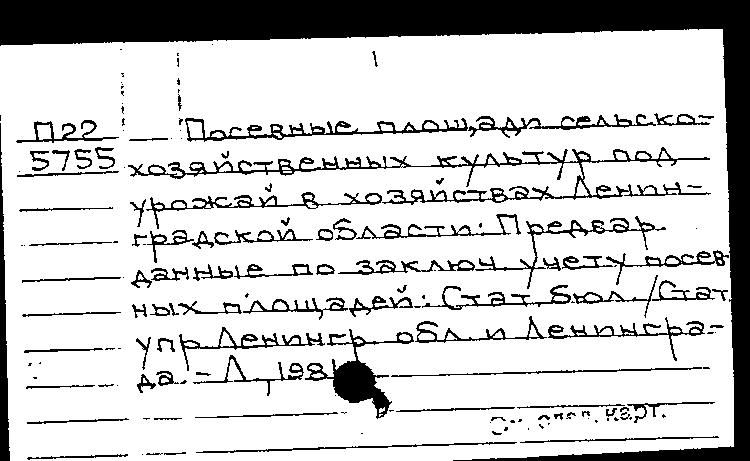 П22 Посевные площади сельско-
5755 хозяйственных культур под
урожай в хозяйствах Ленин-
градской области: Предвар.
данные по заключ. учету посев-
ных площадей: Стат. бюл. / Стат.
упр. Ленингр. обл. и Ленингра-
да. - Л., 198
карт.